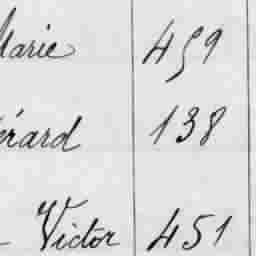 Marie 459
érard 138
Victor 451